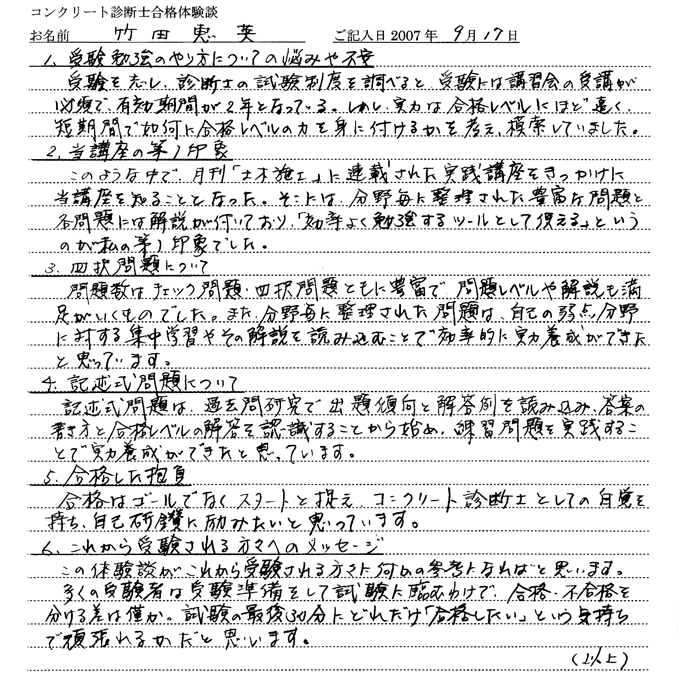 コンクリート診断士合格体験談
お名前 竹田恵英 ご記入日2007年 9月17日
1. 受験勉強のやり方についての悩みや不安
受験を志し、診断士の試験制度を調べると、受験には講習会の受講が
必須で、有効期間が2年となっている。しかし、実力は合格レベルにほど遠く、
短期間で如何に合格レベルの力を身に付けるかを考え、模索していました。
2. 当講座の第1印象
このような中で、月刊「土木施工」に連載された実践講座をきっかけに
当講座を知ることとなった。そこには、分野毎に整理された豊富な問題と
各問題には解説が付いており、「効率よく勉強するツールとして使える」という
のが私の第1印象でした。
3. 四択問題について
問題数はチェック問題・四択問題ともに豊富で、問題レベルや解説も満
足がいくものでした。また、分野毎に整理された問題は、自己の弱点分野
に対する集中学習やその解説を読み込むことで効率的に実力養成ができた
と思っています。
4. 記述式問題について
記述式問題は、過去問研究で出題傾向と解答例を読み込み、答案の
書き方と合格レベルの解答を認識することから始め、練習問題を実践するこ
とで実力養成ができたと思っています。
5. 合格した抱負
合格はゴールでなくスタートと捉え、コンクリート診断士としての自覚を
持ち、自己研鑽に励みたいと思っています。
6. これから受験される方々へのメッセージ
この体験談がこれから受験される方々に何かの参考になればと思います。
多くの受験者は受験準備をして試験に臨むわけで、合格・不合格を
分ける差は僅か。試験の最後30分にどれだけ「合格したい」という気持ち
で頑張れるかだと思います。
(以上)